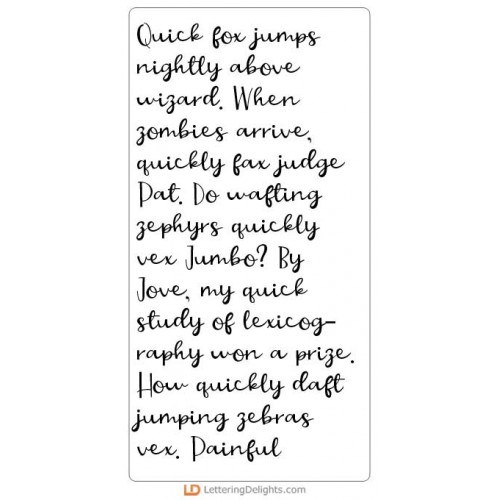 Quick fox jumps
nightly above
wizard. When
zombies arrive,
quickly fax judge
Pat. Do wafting
zephyrs quickly
vex Jumbo? By
Jove, my quick
study of lexicog-
raphy won a prize.
How quickly daft
jumping zebras
vex. Painful
LD LetteringDelights.com